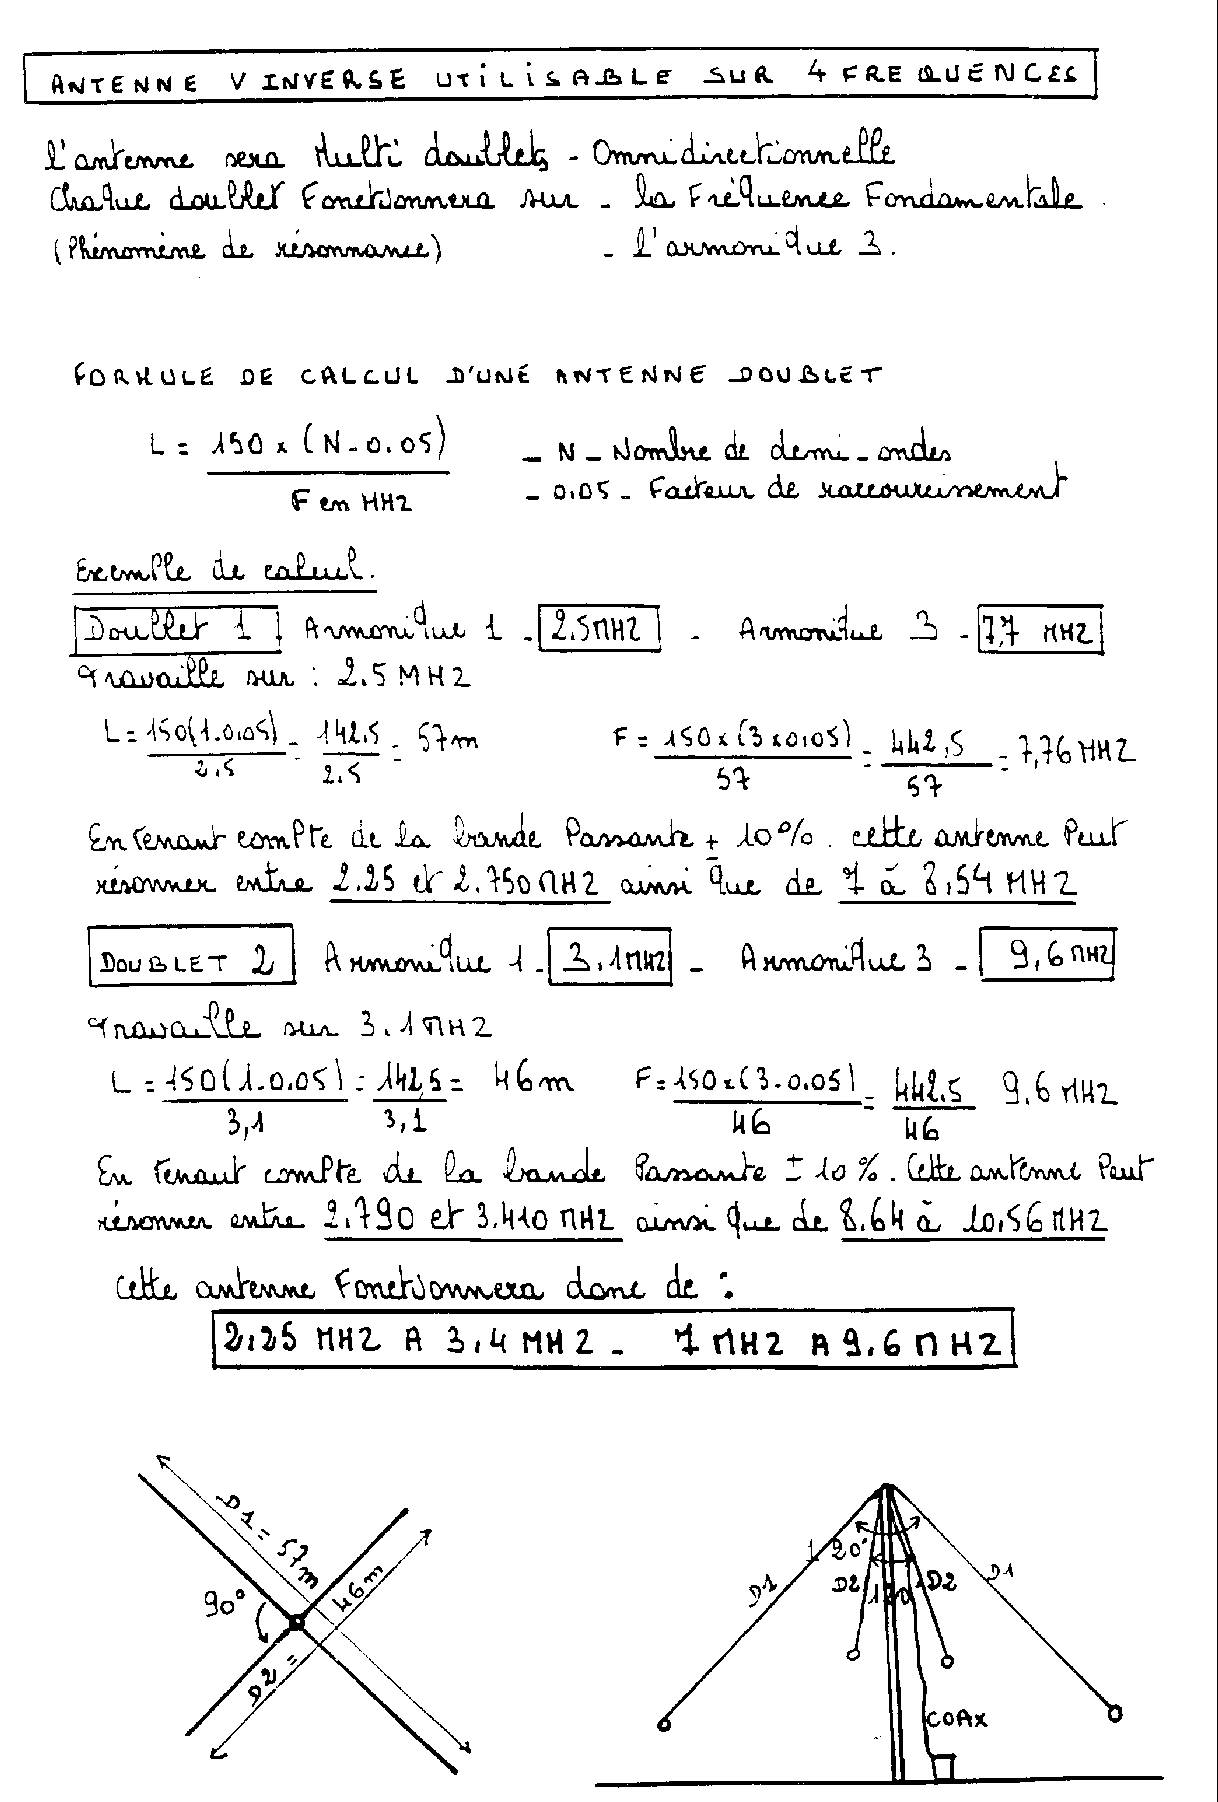 ANTENNE V INVERSE UTILISABLE SUR 4 FREQUENCES
l'antenne sera Multi doublets - Omnidirectionnelle
Chaque doublet Fonctionnera sur - la Fréquence Fondamentale.
(Phénomène de résonnance) - l'armonique 3.
FORMULE DE CALCUL D'UNE ANTENNE DOUBLET
L = 150 x (N - 0.05) / F en MHZ
- N - Nombre de demi-ondes
- 0.05 - Facteur de raccourcissement
Exemple de calcul.
Doublet 1 Armonique 1 - 2.5 MHZ - Armonique 3 - 7,7 MHZ
Travaille sur : 2.5 MHZ
L = 150(1.0.05) / 2.5 = 142.5 / 2.5 = 57m F = 150 x (3 x 0.05) / 57 = 442,5 / 57 = 7,76 MHZ
En tenant compte de la bande Passante ± 10%. cette antenne Peut
résonner entre 2.25 et 2.750 MHZ ainsi que de 7 à 8,54 MHZ
DOUBLET 2 Armonique 1 - 3.1 MHZ - Armonique 3 - 9,6 MHZ
Travaille sur 3.1 MHZ
L = 150(1.0.05) / 3,1 = 142,5 / 3,1 = 46m F = 150 x (3.0.05) / 46 = 442.5 / 46 9.6 MHZ
En tenant compte de la bande Passante ± 10%. Cette antenne Peut
résonner entre 2.790 et 3.410 MHZ ainsi que de 8.64 à 10,56 MHZ
Cette antenne Fonctionnera donc de :
2.25 MHZ A 3.4 MHZ - 7 MHZ A 9.6 MHZ
D1 = 57m
90°
D2 = 46m
120°
D1
D2
120
D2
D1
COAX